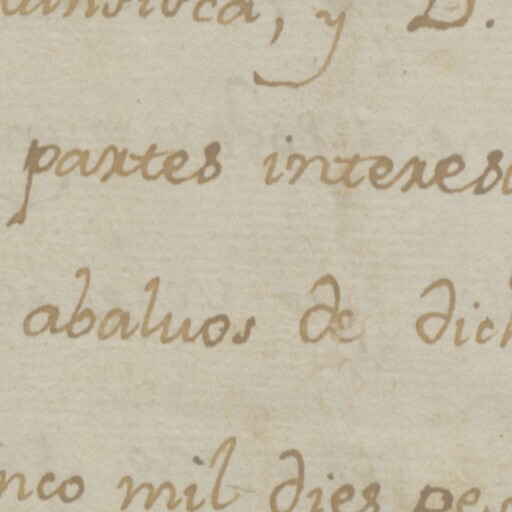 y D.
partes interes
abaluos de dich
nco mil dies pes